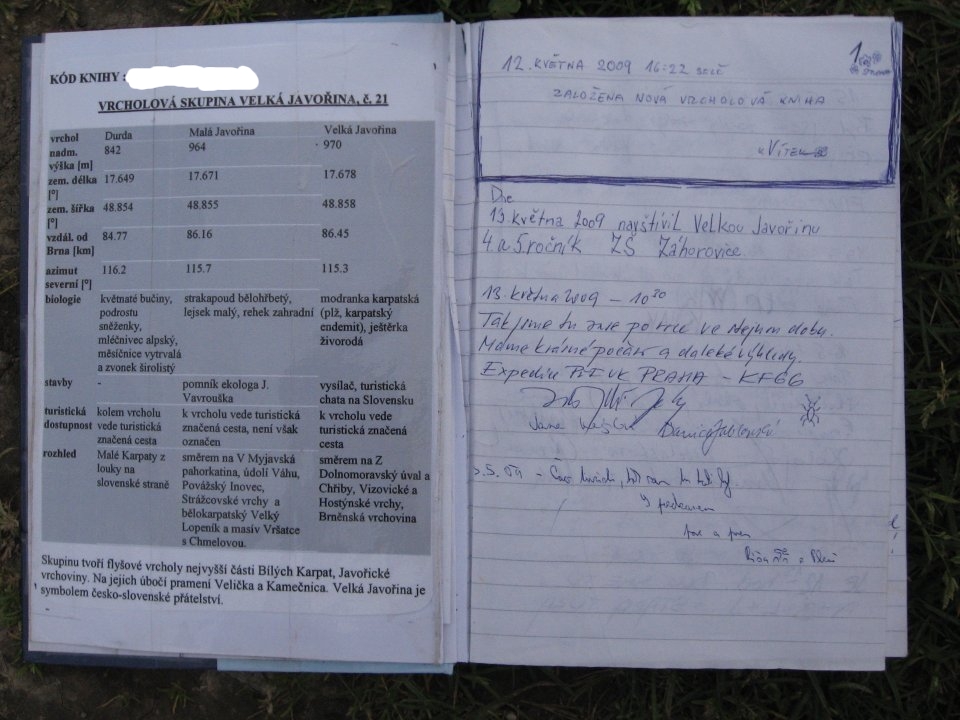 KÓD KNIHY :
VRCHOLOVÁ SKUPINA VELKÁ JAVOŘINA, č. 21
vrchol Durda Malá Javořina Velká Javořina
nadm. výška [m] 842 964 970
zem. délka [°] 17.649 17.671 17.678
zem. šířka [°] 48.854 48.855 48.858
vzdál. od Brna [km] 84.77 86.16 86.45
azimut severní [°] 116.2 115.7 115.3
biologie
květnaté bučiny,
podrostu
sněženky,
mléčnivec alpský,
měsíčnice vytrvalá
a zvonek širolistý
strakapoud bělohřbetý,
lejsek malý, rehek zahradní
modranka karpatská
(plž, karpatský
endemit), ještěrka
živorodá
stavby
-
pomník ekologa J.
Vavrouška
vysílač, turistická
chata na Slovensku
turistická
dostupnost
kolem vrcholu
vede turistická
značená cesta
k vrcholu vede turistická
značená cesta, není však
označen
k vrcholu vede
turistická značená
cesta
rozhled
Malé Karpaty z
louky na
slovenské straně
směrem na V Myjavská
pahorkatina, údolí Váhu,
Považský Inovec,
Strážcovské vrchy a
bělokarpatský Velký
Lopeník a masív Vršatce
s Chmelovou.
směrem na Z
Dolnomoravský úval a
Chřiby, Vizovické a
Hostýnské vrchy,
Brněnská vrchovina
Skupinu tvoří flyšové vrcholy nejvyšší části Bílých Karpat, Javořické
vrchoviny. Na jejich úbočí pramení Velička a Kamečnica. Velká Javořina je
symbolem česko-slovenské přátelství.
1.
STRANA
12. KVĚTNA 2009 16:22 SELČ
ZALOŽENA NOVÁ VRCHOLOVÁ KNIHA
VÍTEK
Dne
13 května 2009 navštívil Velkou Javořinu
4. a 5. ročník ZŠ Záhorovice
13. května 2009 – 10 30
Tak jsme tu zase po roce ve stejnou dobu.
Máme krásné počasí a daleké výhledy.
Expedice PřF UK PRAHA – KFGG
Jana